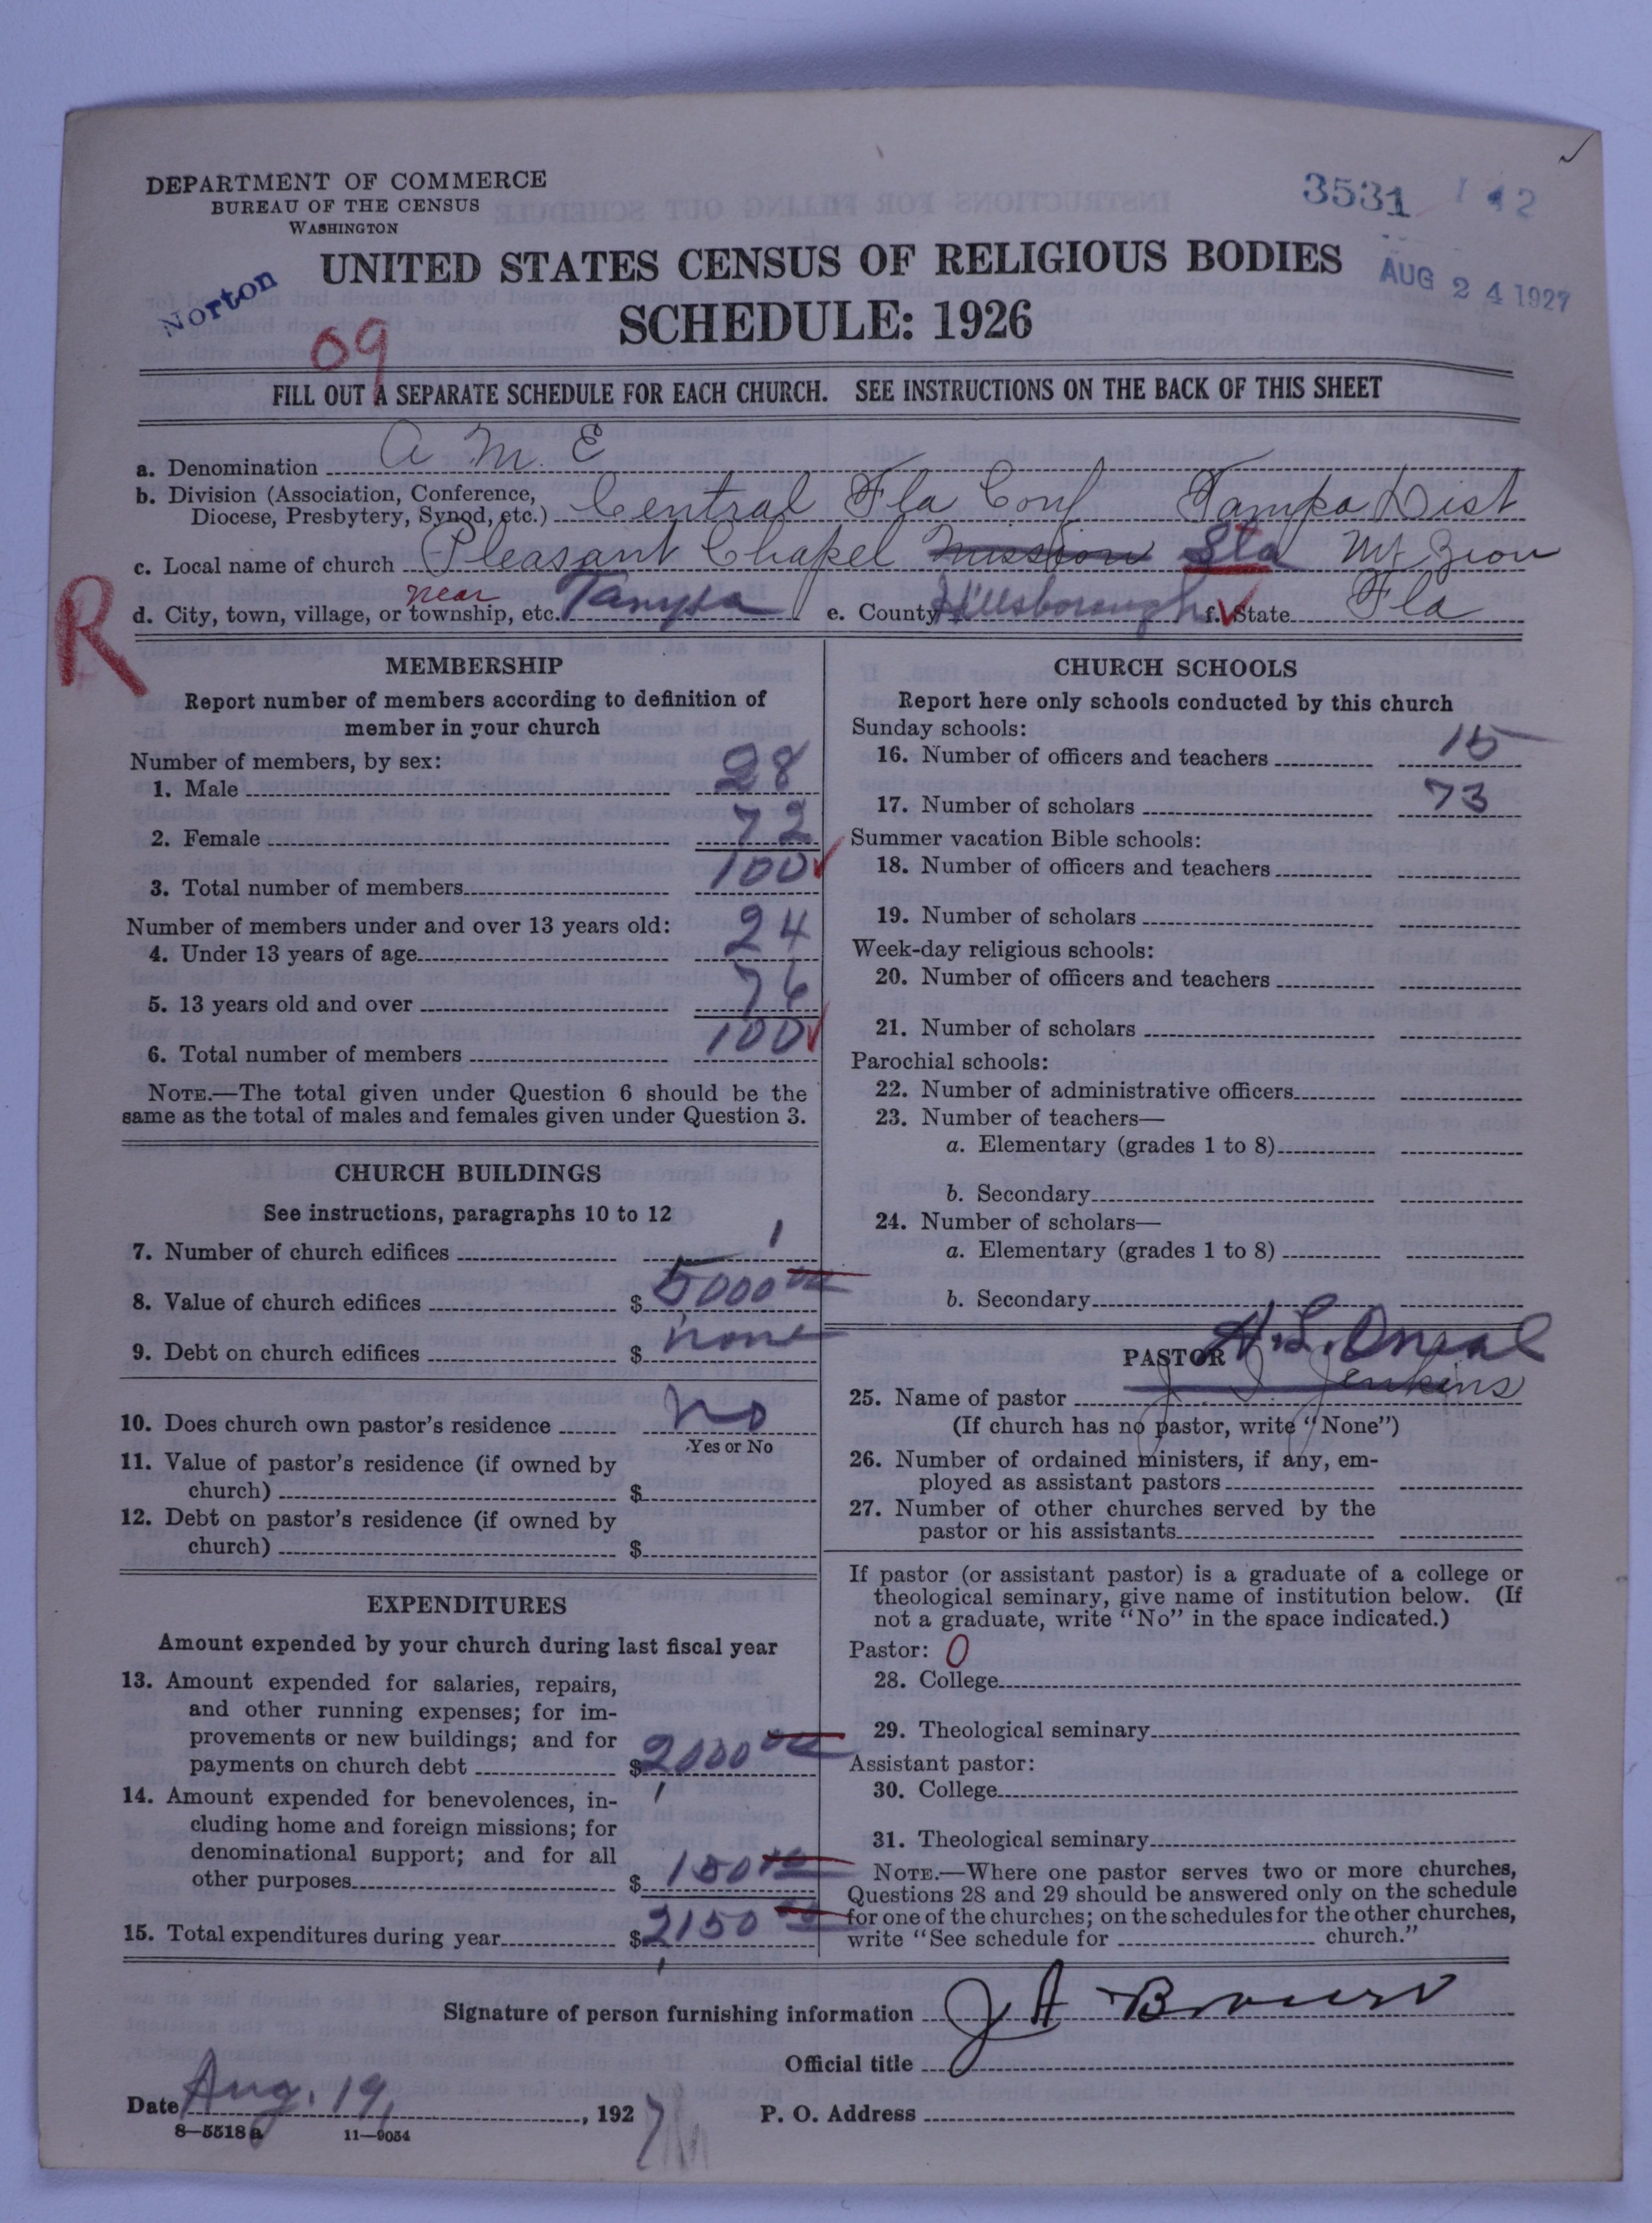 DEPARTMENT OF COMMERCE
BUREAU OF THE CENSUS
WASHINGTON
3531 1 42
UNITED STATES CENSUS OF RELIGIOUS BODIES
AUG 24 1927
Norton
SCHEDULE: 1926
09
FILL OUT A SEPARATE SCHEDULE FOR EACH CHURCH. SEE INSTRUCTIONS ON THE BACK OF THIS SHEET
a. Denomination A M. E
b. Division (Association, Conference, Diocese, Presbytery, Synod, etc.) Central Fla Conf Tampa Dist
c. Local name of church Pleasant Chapel Mission Sta Mt Zion
R
d. City, town, village, or township, etc. near Tampa e. County Hillsborough f. State Fla
MEMBERSHIP
Report number of members according to definition of
member in your church
Number of members, by sex:
1. Male 28
2. Female 72
3. Total number of members 100
Number of members under and over 13 years old:
4. Under 13 years of age 24
5. 13 years old and over 76
6. Total number of members 100
NOTE.—The total given under Question 6 should be the
same as the total of males and females given under Question 3.
CHURCH BUILDINGS
See instructions, paragraphs 10 to 12
7. Number of church edifices 1
8. Value of church edifices $ 5000 00
9. Debt on church edifices $ none
10. Does church own pastor's residence No
Yes or No
11. Value of pastor's residence (if owned by
church) $
12. Debt on pastor's residence (if owned by
church) $
EXPENDITURES
Amount expended by your church during last fiscal year
13. Amount expended for salaries, repairs,
and other running expenses; for im-
provements or new buildings; and for
payments on church debt $ 2000 00
14. Amount expended for benevolences, in-
cluding home and foreign missions; for
denominational support; and for all
other purposes $ 150 00
15. Total expenditures during year $ 2150 00
CHURCH SCHOOLS
Report here only schools conducted by this church
Sunday schools:
16. Number of officers and teachers 15
17. Number of scholars 73
Summer vacation Bible schools:
18. Number of officers and teachers
19. Number of scholars
Week-day religious schools:
20. Number of officers and teachers
21. Number of scholars
Parochial schools:
22. Number of administrative officers
23. Number of teachers—
a. Elementary (grades 1 to 8)
b. Secondary
24. Number of scholars—
a. Elementary (grades 1 to 8)
b. Secondary
PASTOR H. L. Oneal
25. Name of pastor J S Jenkins
(If church has no pastor, write "None")
26. Number of ordained ministers, if any, em-
ployed as assistant pastors
27. Number of other churches served by the
pastor or his assistants
If pastor (or assistant pastor) is a graduate of a college or
theological seminary, give name of institution below. (If
not a graduate, write "No" in the space indicated.)
Pastor: 0
28. College
29. Theological seminary
Assistant pastor:
30. College
31. Theological seminary
NOTE.—Where one pastor serves two or more churches,
Questions 28 and 29 should be answered only on the schedule
for one of the churches; on the schedules for the other churches,
write "See schedule for church."
Signature of person furnishing information J A
Official title
Date Aug. 19, 1927 P. O. Address
8—5518 a 11—9054